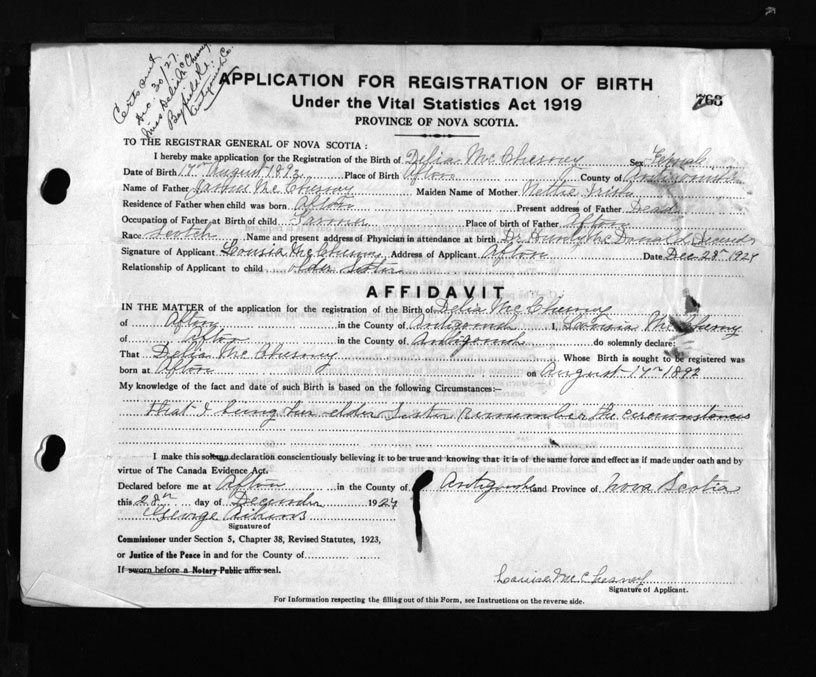 Cert sent
Dec 30/27.
Miss Delia Mc Chesney
Bayfield Rd.
Antigonish Co.
APPLICATION FOR REGISTRATION OF BIRTH
Under the Vital Statistics Act 1919
768
PROVINCE OF NOVA SCOTIA.
TO THE REGISTRAR GENERAL OF NOVA SCOTIA :
I hereby make application for the Registration of the Birth of Delia Mc Chesney Sex Female
Date of Birth 17th August 1892 Place of Birth Afton County of Antigonish
Name of Father James Mc Chesney Maiden Name of Mother Nettie Irish
Residence of Father when child was born Afton Present address of Father Dead
Occupation of Father at Birth of child Farmer Place of birth of Father Afton
Race Scotch Name and present address of Physician in attendance at birth Dr. McDonald
Signature of Applicant Lousia Mc Chesney Address of Applicant Afton Date Dec 28th 1927
Relationship of Applicant to child older Sister
AFFIDAVIT
IN THE MATTER of the application for the registration of the Birth of Delia Mc Chesney
of Afton in the County of Antigonish I, Lousia Mc Chesney
of Afton in the County of Antigonish do solemnly declare:
That Delia Mc Chesney Whose Birth is sought to be registered was
born at Afton on August 17th 1892
My knowledge of the fact and date of such Birth is based on the following Circumstances:—
that I being her older Sister remember the circumstances
I make this solemn declaration conscientiously believing it to be true and knowing that it is of the same force and effect as if made under oath and by
virtue of The Canada Evidence Act.
Declared before me at Afton in the County of Antigonish and Province of Nova Scotia
this 28th day of December 1927
George Atkins
Signature of
Commissioner under Section 5, Chapter 38, Revised Statutes, 1923,
or Justice of the Peace in and for the County of
If sworn before a Notary Public affix seal.
Louise Mc Chesney
Signature of Applicant.
For Information respecting the filling out of this Form, see Instructions on the reverse side.